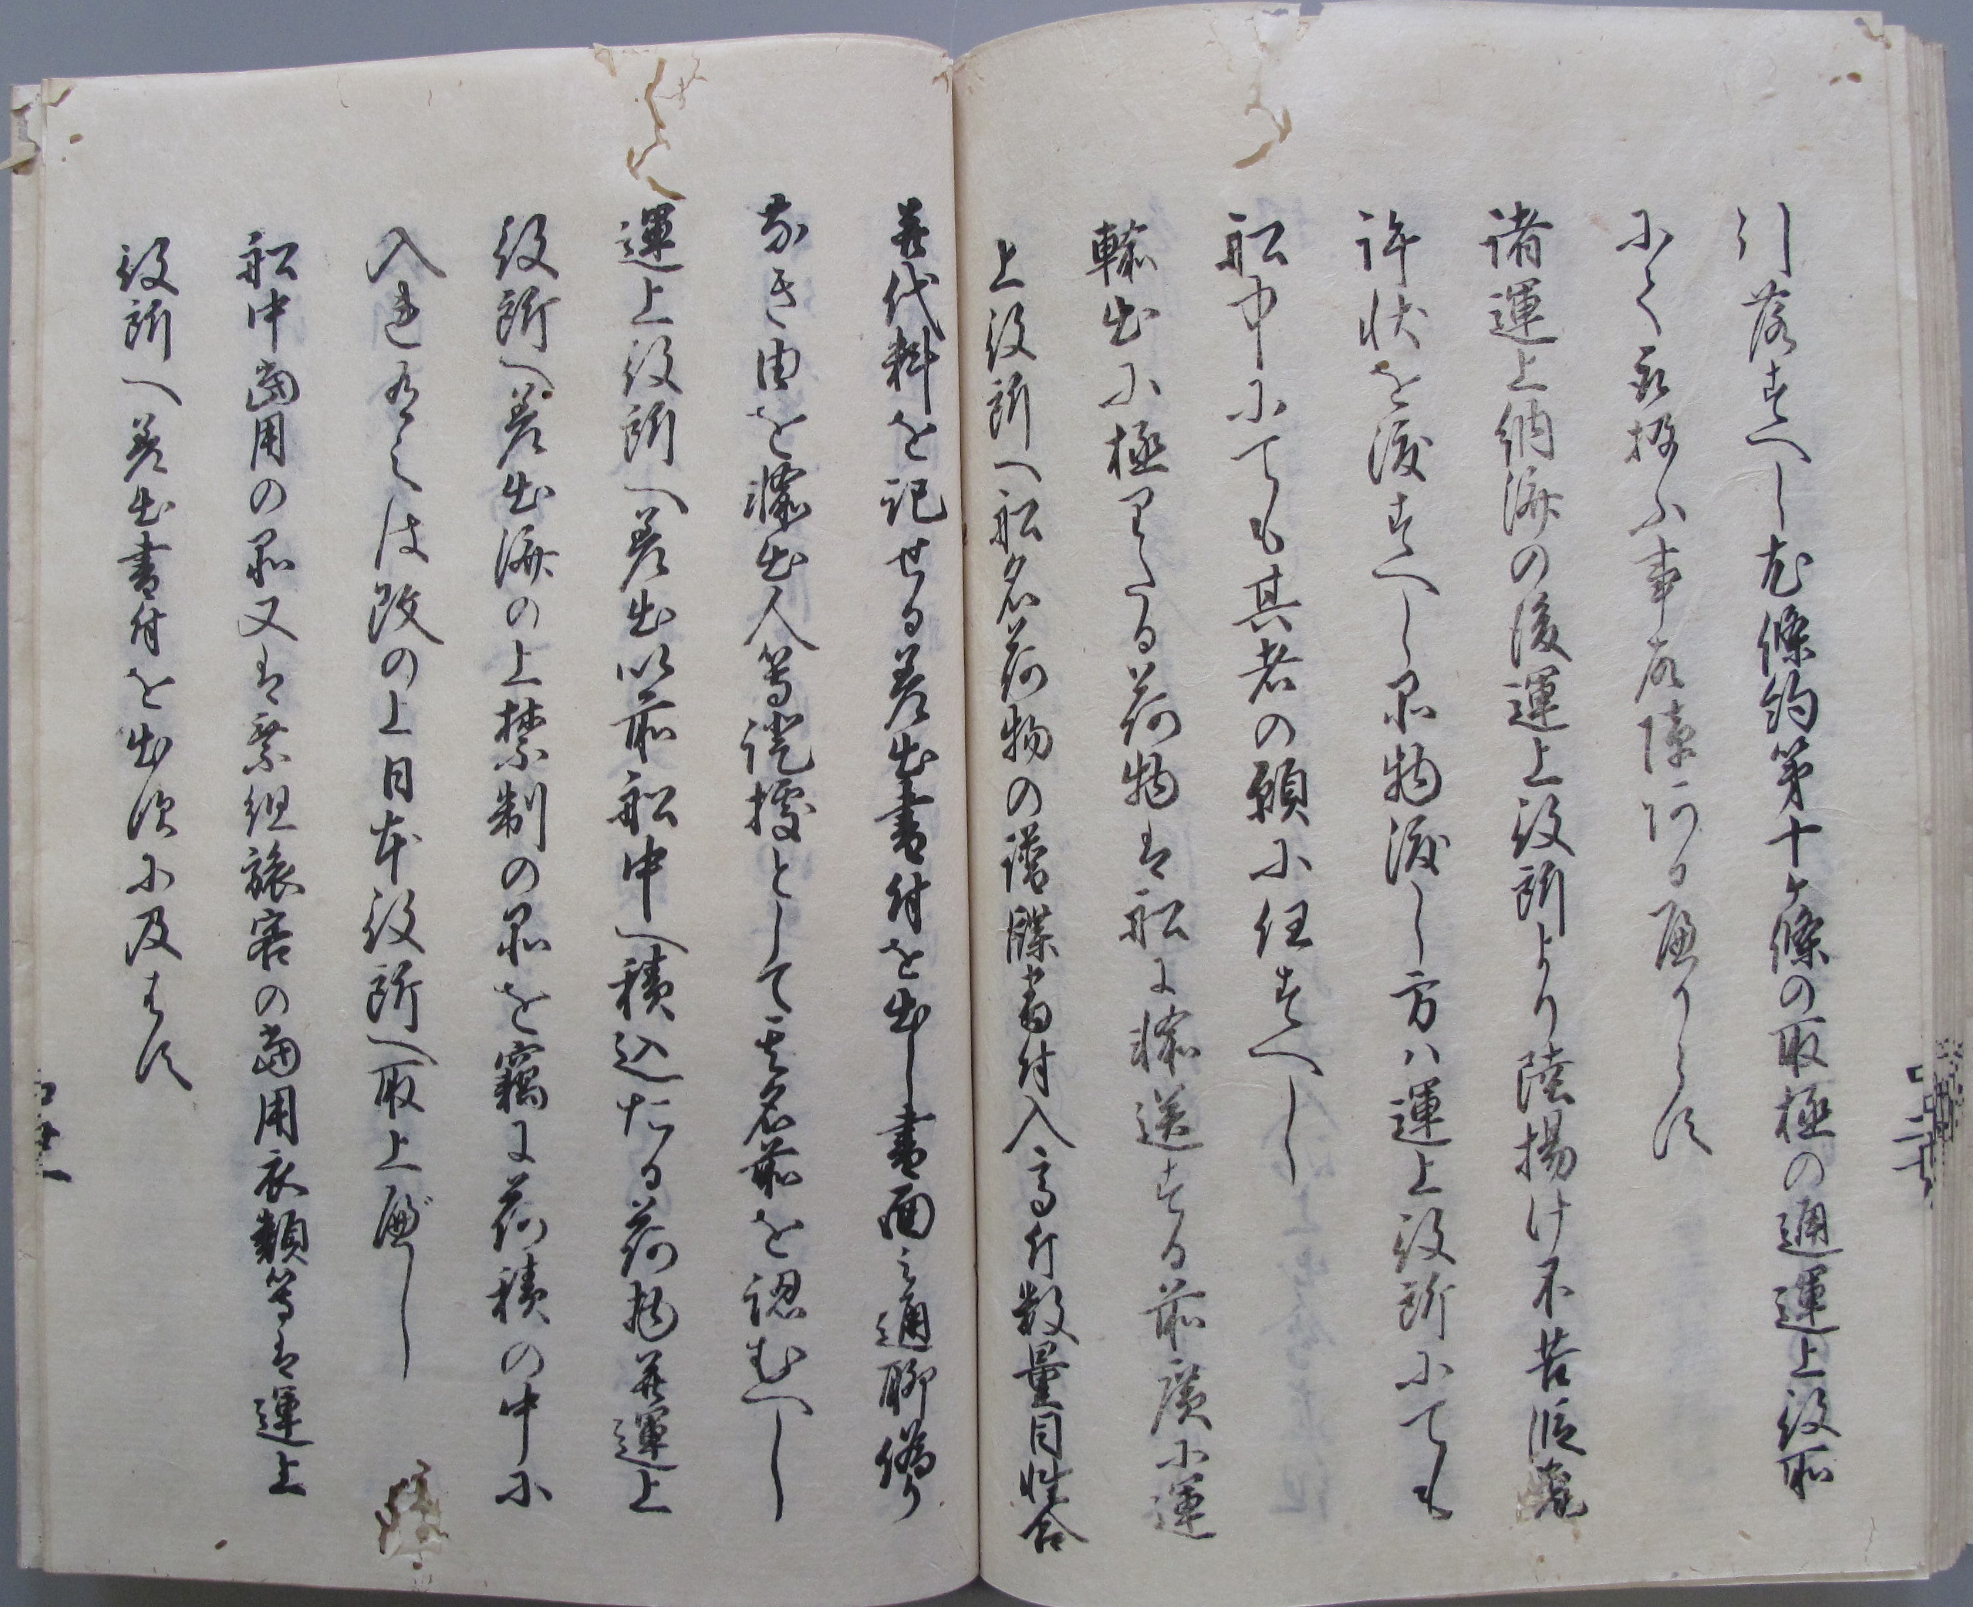 引落すへし尤條約第十ケ條の取極の通運上役所
にて取扱ふ事故障ある可らす
諸運上納済の後運上役所より陸揚け不苦段免
許状を渡すへし品物渡し方ハ運上役所にても
船中にても其者の願に任すへし
輸出に極りたる荷物は船に輸送する前広に運
上役所へ船名荷物の譜牒書付入高斤数量目性合
並代料を記せる差出書付を出し書面之通聊偽り
なき由を輸出人等證據として其名前を認むへし
運上役所へ差出以前船中へ積込たる荷物並運上
役所へ差出済の上禁制の品を竊に荷積の中に
入れ有之は改の上日本役所へ取上へし
船中歯用の品又は乗組旅客の歯用衣類等は運上
役所へ差出書付を出須に及はす